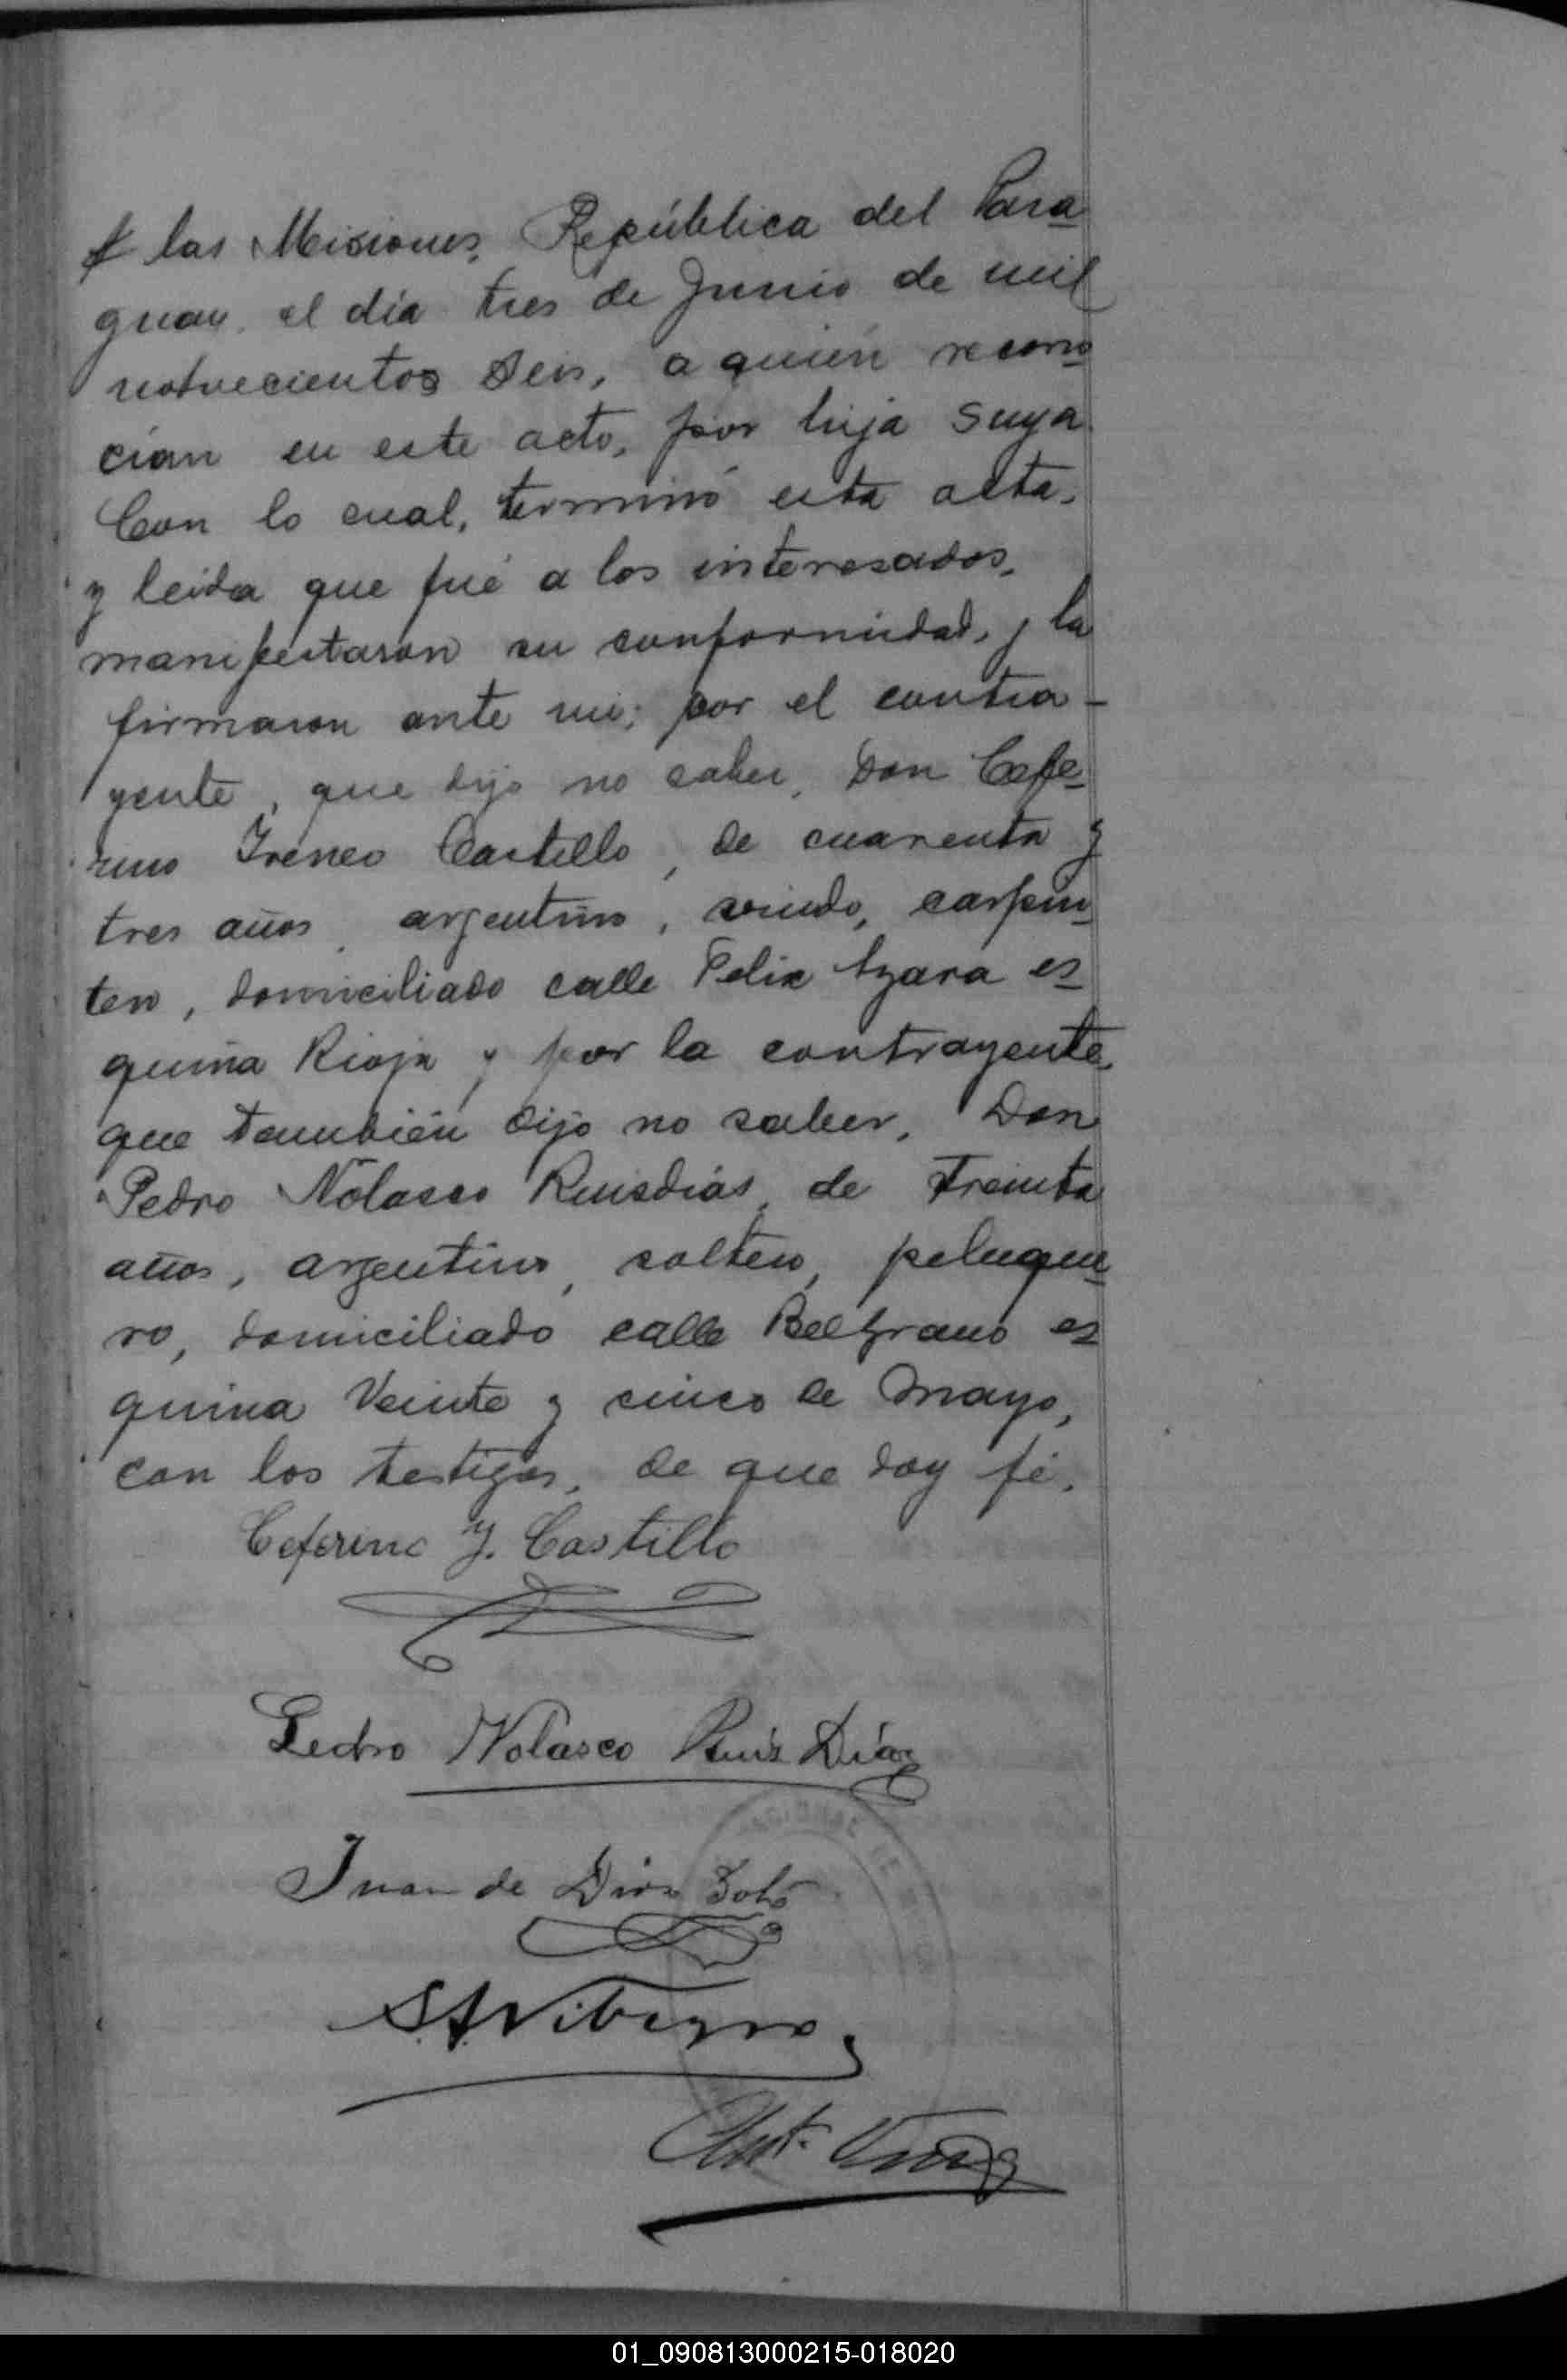 las Misiones, República del Para-
guay, el día tres de Junio de mil
novecientos seis, a quién recono-
cían en este acto, por hija suya.
Con lo cual, terminó esta acta,
y leída que fué a los interesados,
manifestaron su conformidad, y la
firmaron ante mí; por el contra-
yente, que dijo no saber, Don Cefe-
rino Ireneo Castillo, de cuarenta y
tres años, argentino, viudo, carpin-
tero, domiciliado calle Felix Azara es-
quina Rioja y por la contrayente,
que también dijo no saber, Don
Pedro Nolasco Ruisdiás, de treinta
años, argentino, soltero, peluque-
ro, domiciliado calle Belgrano es-
quina Veinte y cinco de Mayo,
con los testigos, de que doy fé.
Ceferino Y. Castillo
Pedro Nolasco Ruiz Díaz
Juan de Dios Soto
01_090813000215-018020